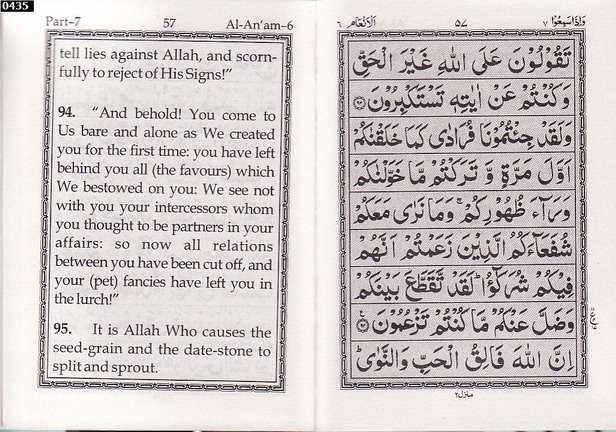 0435
Part–7 57 Al-An'am–6
tell lies against Allah, and scorn-
fully to reject of His Signs!"
94. "And behold! You come to
Us bare and alone as We created
you for the first time: you have left
behind you all (the favours) which
We bestowed on you: We see not
with you your intercessors whom
you thought to be partners in your
affairs: so now all relations
between you have been cut off, and
your (pet) fancies have left you in
the lurch!"
95. It is Allah Who causes the
seed-grain and the date-stone to
split and sprout.
وَاِذَاسَمِعُوْا ٧ ٥٧ اَلْاَنْعَام ٦
تَقُوْلُوْنَ عَلَى اللهِ غَيْرَ الْحَقِّ
وَكُنْتُمْ عَنْ اٰيٰتِهٖ تَسْتَكْبِرُوْنَ ﴿٩٣﴾
وَلَقَدْ جِئْتُمُوْنَا فُرَادٰى كَمَا خَلَقْنٰكُمْ
اَوَّلَ مَرَّةٍ وَّ تَرَكْتُمْ مَّا خَوَّلْنٰكُمْ
وَرَآءَ ظُهُوْرِكُمْ ۚ وَمَا نَرٰى مَعَكُمْ
شُفَعَآءَكُمُ الَّذِيْنَ زَعَمْتُمْ اَنَّهُمْ
فِيْكُمْ شُرَكٰٓؤُا ؕ لَقَدْ تَّقَطَّعَ بَيْنَكُمْ
وَضَلَّ عَنْكُمْ مَّا كُنْتُمْ تَزْعُمُوْنَ ﴿٩٤﴾
اِنَّ اللهَ فَالِقُ الْحَبِّ وَالنَّوٰى ؕ
منزل ٢